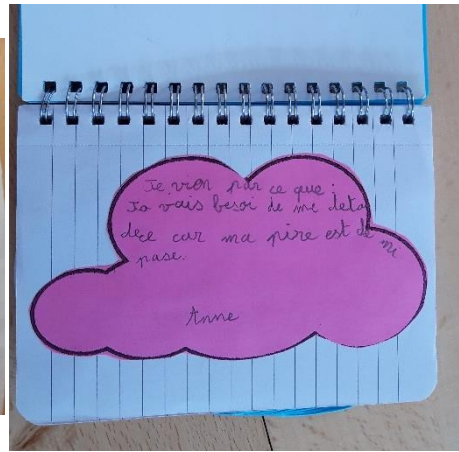 Je vien par ce que :
Ja vais besoi de me leta
dece car ma pire est de me
pase.
Anne